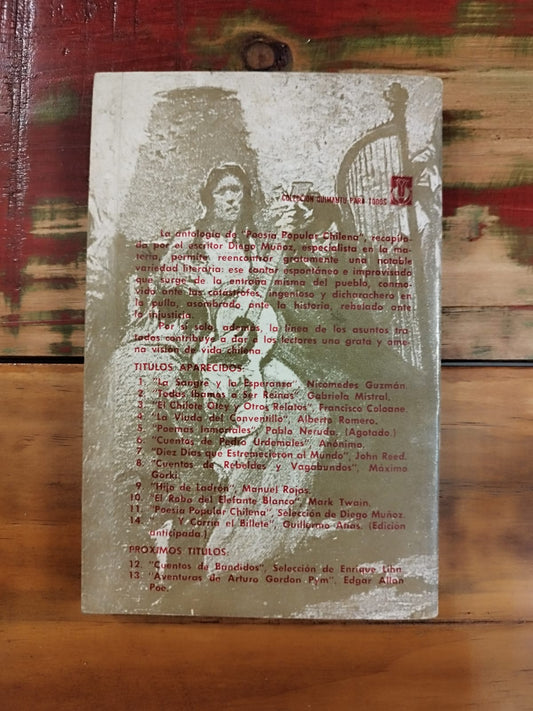 COLECCION QUIMANTU PARA TODOS
La antología de "Poesía Popular Chilena", recopila-
da por el escritor Diego Muñoz, especialista en la ma-
teria, permite reencontrar gratamente una notable
variedad literaria: ese cantar espontáneo e improvisado
que surge de la entraña misma del pueblo, conmo-
vido ante las catástrofes, ingenioso y dicharachero en
la pulla, asombrado ante la historia, rebelado ante
la injusticia.
Por sí sola, además, la línea de los asuntos tra-
tados contribuye a dar a los lectores una grata y ame-
na visión de vida chilena.
TITULOS APARECIDOS:
1. "La Sangre y la Esperanza", Nicomedes Guzmán.
2. "Todas Ibamos a Ser Reinas", Gabriela Mistral.
3. "El Chilote Otey y Otros Relatos", Francisco Coloane.
4. "La Viuda del Conventillo", Alberto Romero.
5. "Poemas Inmortales", Pablo Neruda. (Agotado.)
6. "Cuentos de Pedro Urdemales", Anónimo.
7. "Diez Días que Estremecieron al Mundo", John Reed.
8. "Cuentos de Rebeldes y Vagabundos", Máximo
Gorki.
9. "Hijo de Ladrón", Manuel Rojas.
10. "El Robo del Elefante Blanco", Mark Twain.
11. "Poesía Popular Chilena", Selección de Diego Muñoz.
14. "... Y Corría el Billete", Guillermo Atías. (Edición
anticipada.)
PROXIMOS TITULOS:
12. "Cuentos de Bandidos", Selección de Enrique Lihn.
13. "Aventuras de Arturo Gordon Pym", Edgar Allan
Poe.